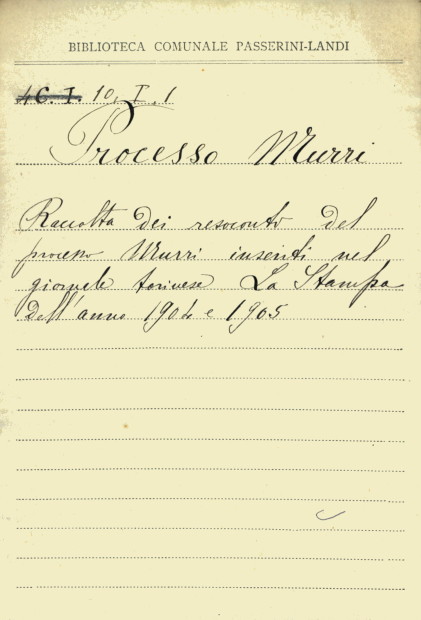 BIBLIOTECA COMUNALE PASSERINI-LANDI
4C.I. 10, I, 1
Processo Murri
Raccolta dei resoconto del
processo Murri inseriti nel
giornale torinese La Stampa
dell'anno 1904 e 1905